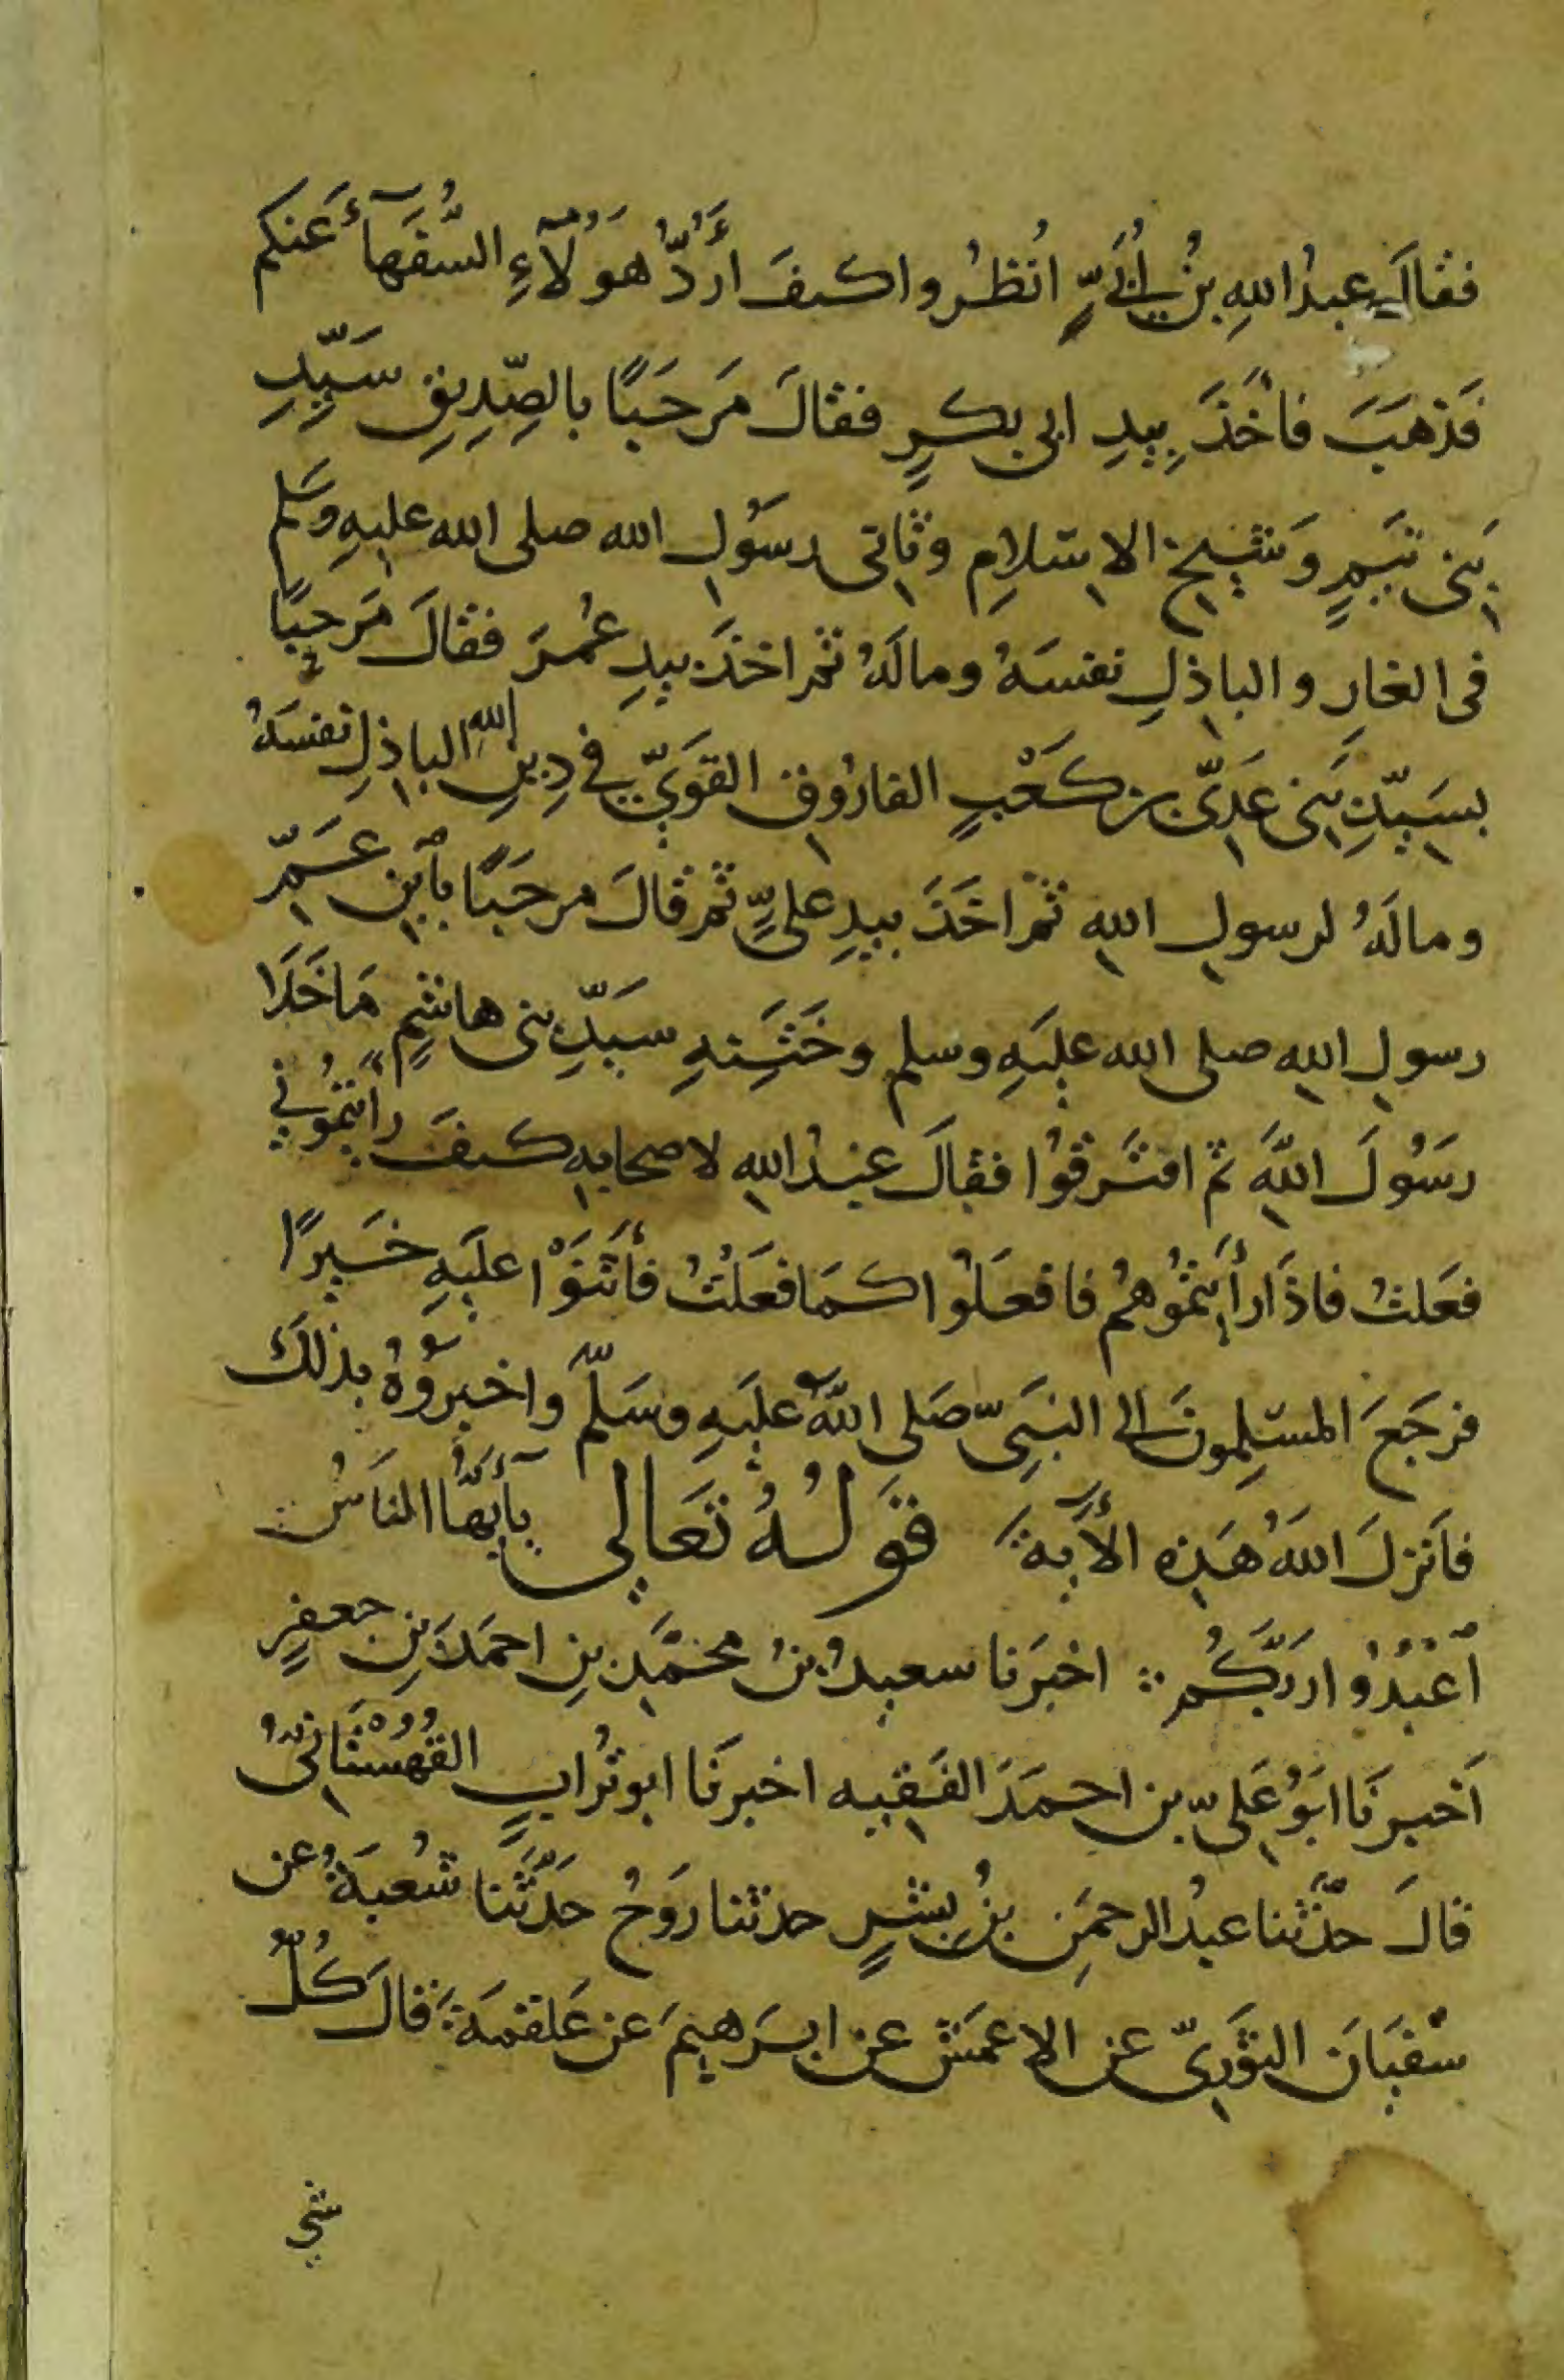 فقالَ عبدُ اللهِ بنُ اُبَيٍّ انُظُروا كيفَ أَرُدُّ هَؤُلَآءِ السُّفَهَآءَ عَنكم
فَذهَبَ فأَخَذَ بِيدِ ابى بكرٍ فقالَ مَرحَبًا بالصِّدِيقِ سَيِّدِ
بَنى تَيمٍ وَشَيخِ الاِسلامِ وثانى رسَوُلِ الله صلى الله عليهِ وسَلم
فى الغارِ والباذِلِ نفسَهُ ومالَهُ ثم اخذَ بيدِ عُمرَ فقالَ مَرحبًا
بسَيّدِ بَنى عَدِىّ بن كَعْبٍ الفارُوقِ القَوَىِّ فى دِينِ اللهِ الباذِلِ نفسَهُ
ومالَهُ لرسولِ اللهِ ثمْ اخَذَ بيدِ علىٍّ ثم قالَ مرحَبًا بٱبنِ عَمِّ
رسولِ اللهِ صلى الله علَيهِ وسلم وخَتَنِهِ سَيّدِ بنى هاشمٍ مَا خَلَا
رسَوُلَ اللهِ ثم افترَقُوا فقالَ عبدُ اللهِ لاصحابهِ كيفَ رأَيتمُوُنى
فعَلتُ فاذَا رأَيتمُوُهُم فافعَلوُا كمَا فعَلْتُ فأَثنَوْا علَيهِ خَيرًا
فرجَعَ المسلِموُنَ الى النبَىِّ صَلى اللهُ علَيهِ وسَلّم واخبرَوُهُ بذلكَ
فاَنزلَ اللهُ هَذِهِ الأَيةَ قوَلُهُ تَعَالى يآأَيُّهَا الناسُ
ٱعْبُدُوُا رَبَّكُم اخبَرنا سعيدُ بنُ محمَّدِ بنِ احمَدَ بنِ جعفرٍ
اَخبرنَا ابَوُ عَلىِّ بن احمَدَ الفَقيه اخبرنَا ابو تُرابٍ القُهُسْتَانىُّ
قالَ حدَّثنا عبدُ الرحمَنِ بنُ بِشرٍ حدثنا رَوحُ حدَّثَنا شُعبَةُ عن
سُفيَانَ الثوَرىِّ عن الاعمَشِ عن ابرَهيمَ عن عَلقمَةَ قالَ كُلُّ
شىء